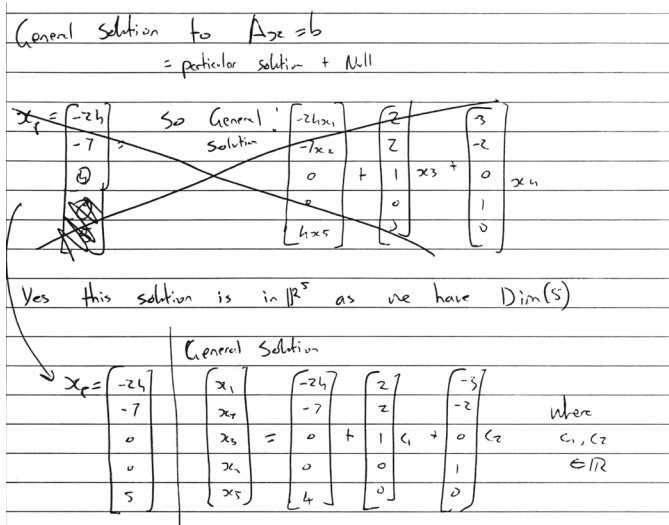 General solution to Ax = b
= particular solution + Null
xp = [-24 -7 0] So General solution: [-24x1 -7x2 0 0 4x5] + [2 2 1 0 0] x3 + [-3 -2 0 1 0] x4
Yes this solution is in ℝ^5 as we have Dim(5)
General Solution
xp = [-24 -7 0 0 5] [x1 x2 x3 x4 x5] = [-24 -7 0 0 4] + [2 2 1 0 0] c1 + [-3 -2 0 1 0] c2 where c1, c2 ∈ ℝ